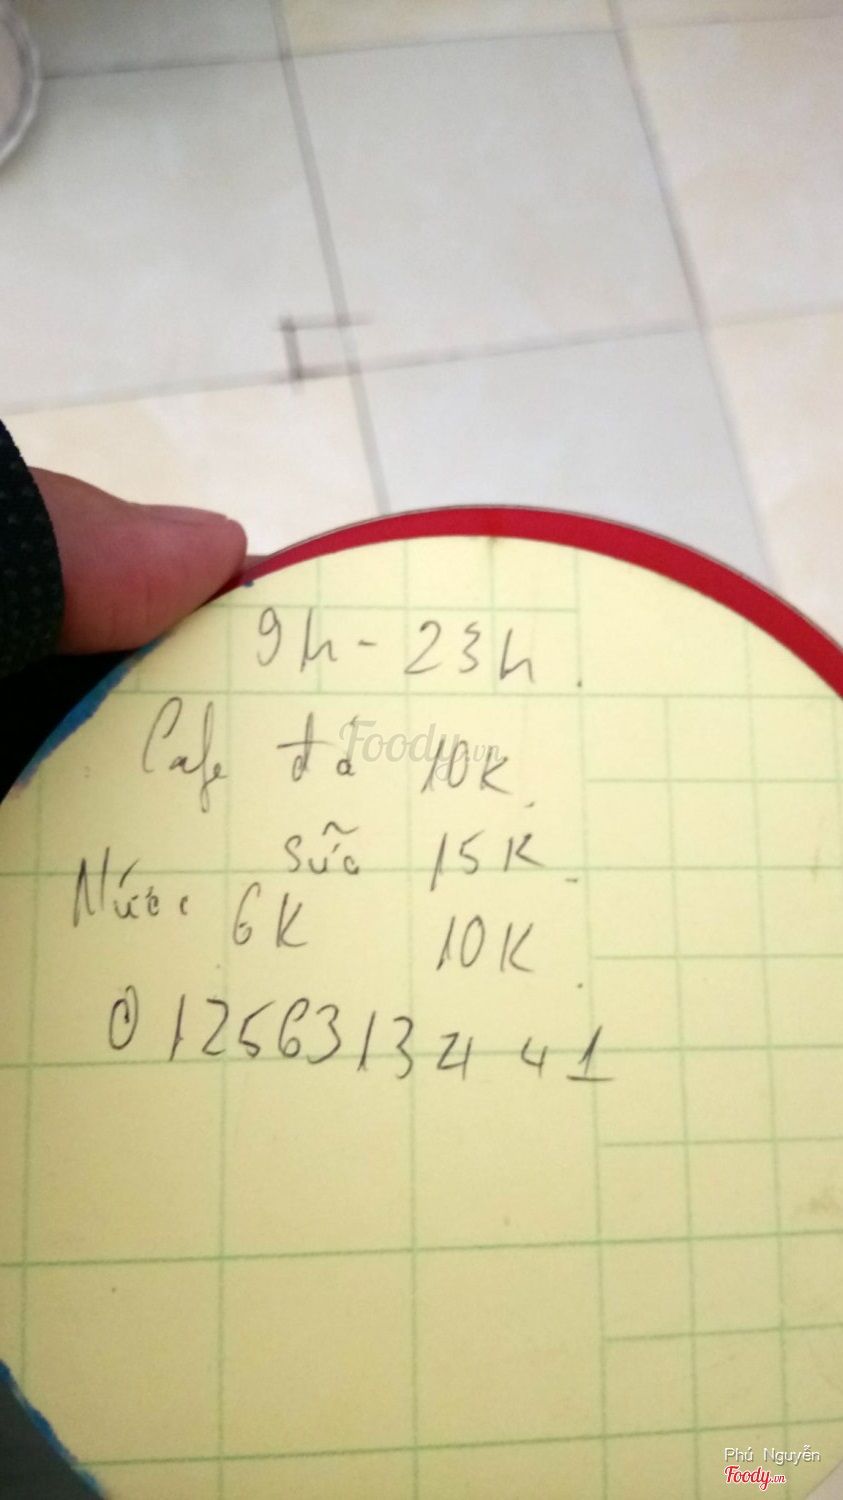 9h - 23h.
Cafe đá 10K.
sữa 15K.
Nước 6K 10K.
01256313441
Foody.vn
Phú Nguyễn
Foody.vn